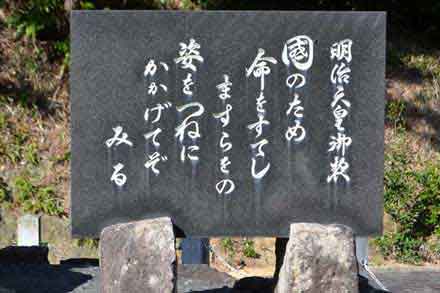 明治天皇御製
国のため
命をすてし
ますらをの
姿をつねに
かかげてぞ
みる